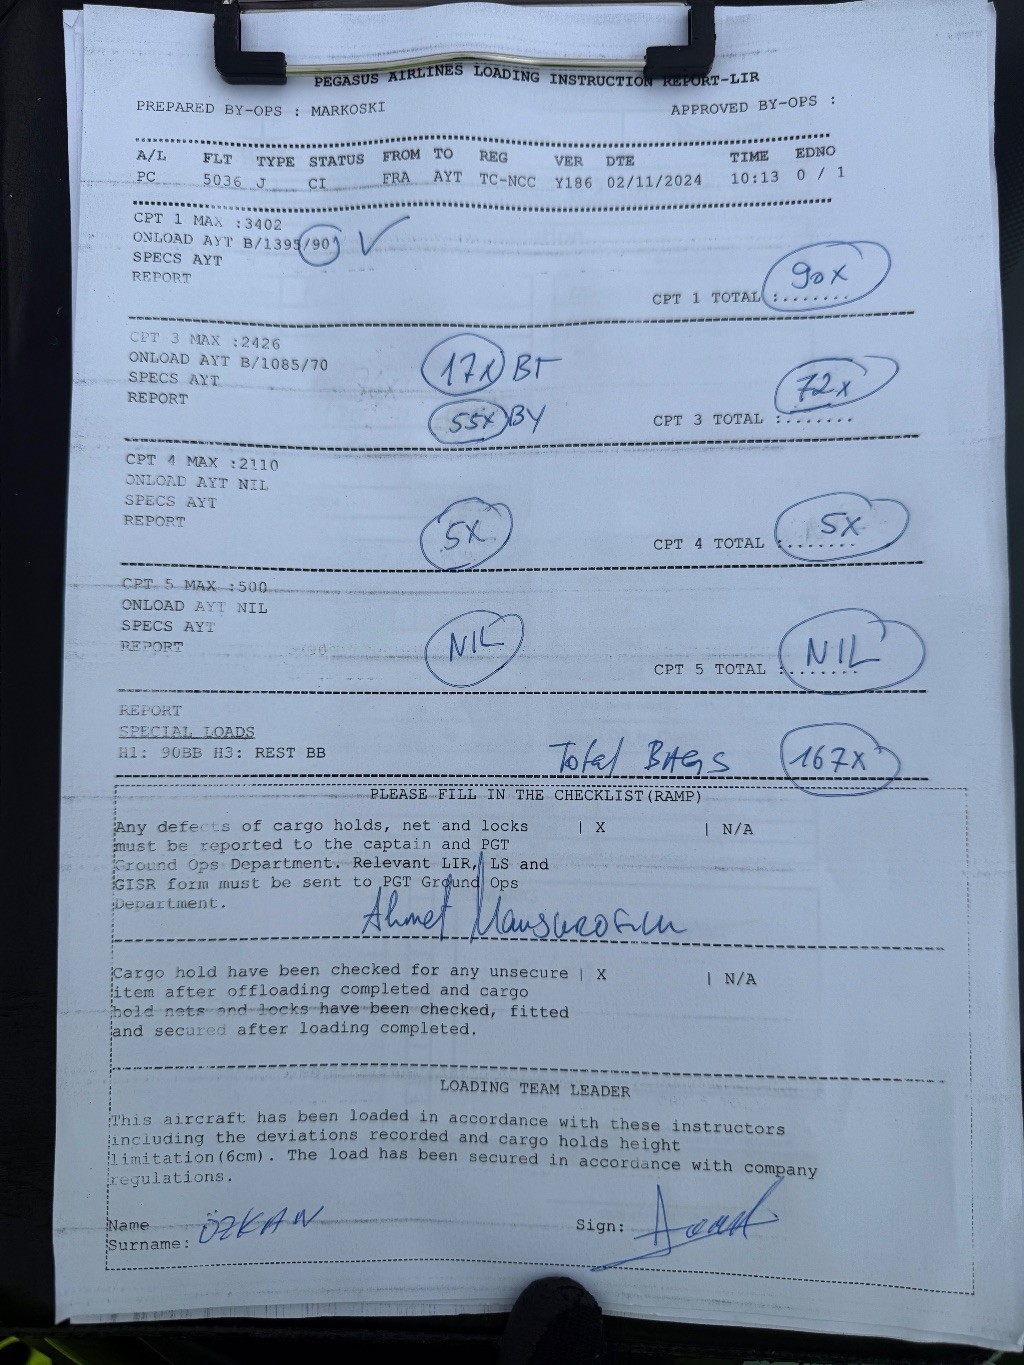 PEGASUS AIRLINES LOADING INSTRUCTION REPORT-LIR
PREPARED BY-OPS : MARKOSKI APPROVED BY-OPS :
A/L FLT TYPE STATUS FROM TO REG VER DTE TIME EDNO
PC 5036 J CI FRA AYT TC-NCC Y186 02/11/2024 10:13 0 / 1
CPT 1 MAX :3402
ONLOAD AYT B/1395/90 ✓
SPECS AYT
REPORT
90X
CPT 1 TOTAL :.......
CPT 3 MAX :2426
ONLOAD AYT B/1085/70
17X BT
SPECS AYT
72X
REPORT
55X BY
CPT 3 TOTAL :.......
CPT 4 MAX :2110
ONLOAD AYT NIL
SPECS AYT
REPORT
5X 5X
CPT 4 TOTAL :.......
CPT 5 MAX :500
ONLOAD AYT NIL
SPECS AYT
REPORT
NIL NIL
CPT 5 TOTAL :.......
REPORT
SPECIAL LOADS
H1: 90BB H3: REST BB
Total BAGS 167X
PLEASE FILL IN THE CHECKLIST(RAMP)
Any defects of cargo holds, net and locks | X | N/A
must be reported to the captain and PGT
Ground Ops Department. Relevant LIR, LS and
GISR form must be sent to PGT Ground Ops
Department.
Ahmet
Cargo hold have been checked for any unsecure | X | N/A
item after offloading completed and cargo
hold nets and locks have been checked, fitted
and secured after loading completed.
LOADING TEAM LEADER
This aircraft has been loaded in accordance with these instructors
including the deviations recorded and cargo holds height
limitation(6cm). The load has been secured in accordance with company
regulations.
Name
Surname: ÖZKAN
Sign: